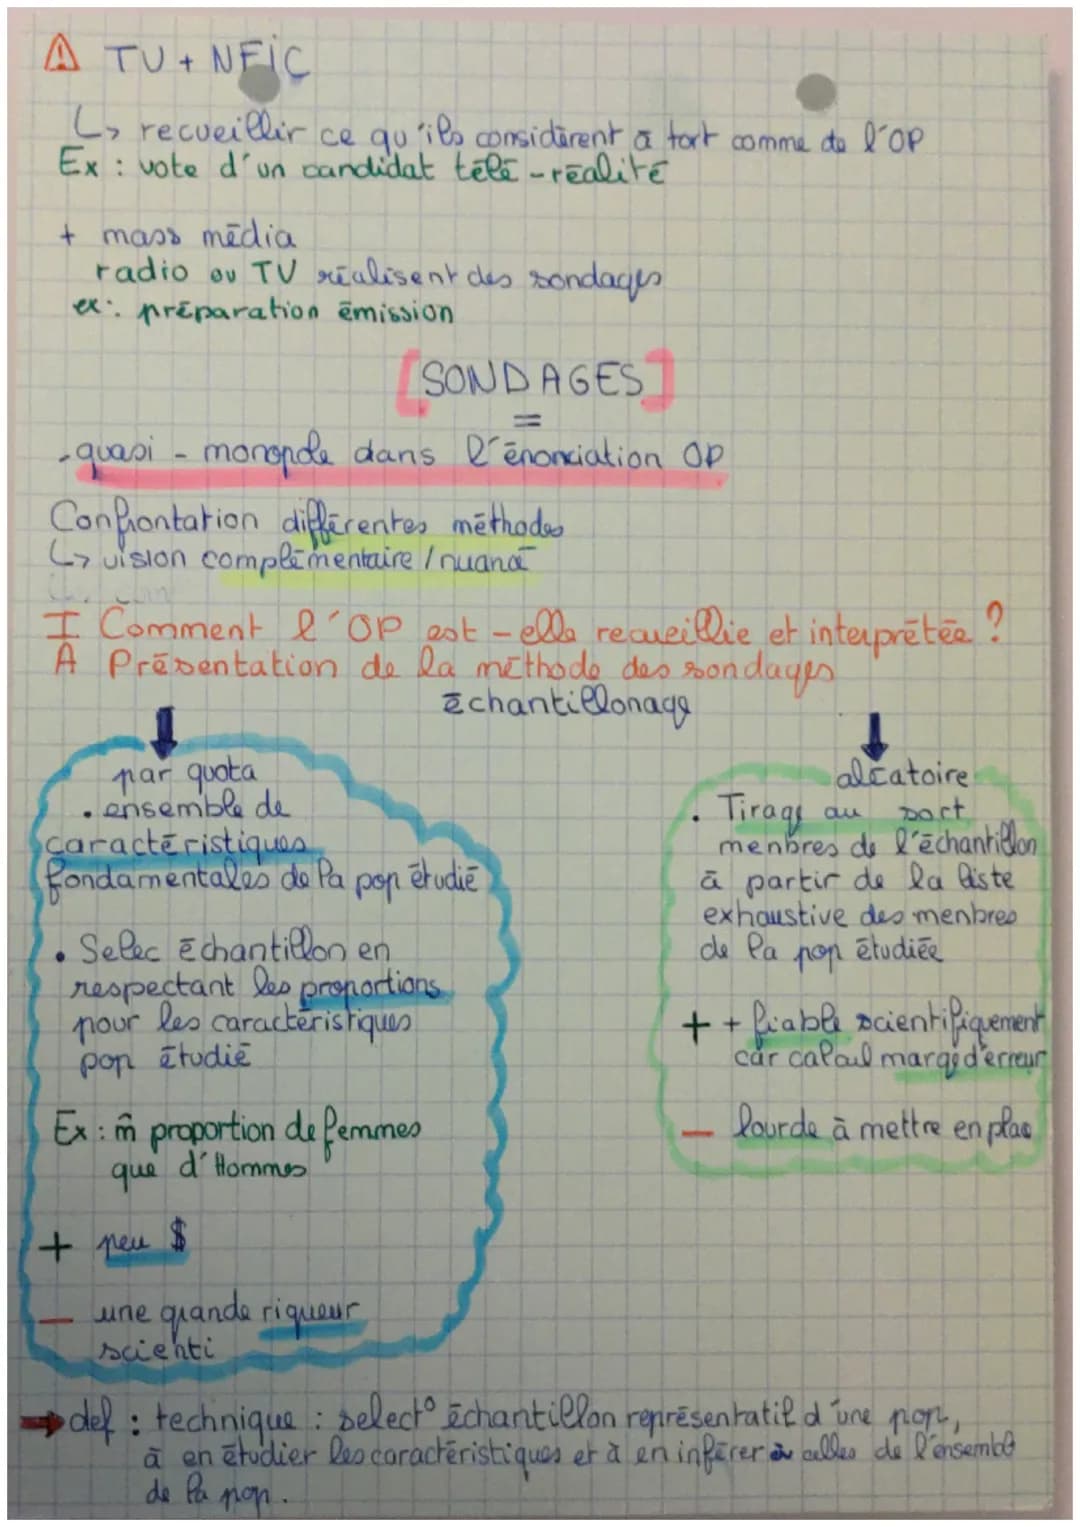 ⚠ TU + NFIC
↳ recueillir ce qu'ils considèrent à tort comme de l'OP
Ex : vote d'un candidat télé-réalité
+ mass média
radio ou TV réalisent des sondages
ex : préparation émission
[SONDAGES]
=
.quasi - monopole dans l'énonciation OP
Confrontation différentes méthodes
↳ vision complémentaire / nuancé
I Comment l'OP est-elle recueillie et interprétée ?
A Présentation de la méthode des sondages
échantillonage
par quota
• ensemble de
caractéristiques
fondamentales de la pop étudié
• Selec échantillon en
respectant les proportions
pour les caractéristiques
pop étudié
Ex : m̂ proportion de femmes
que d'Hommes
+ peu $
- une grande rigueur
scienti
aléatoire
• Tirage au sort
menbres de l'échantillon
à partir de la liste
exhaustive des menbres
de la pop étudiée
+ + fiable scientifiquement
car calcul marge d'erreur
- lourde à mettre en place
→ def : technique : select° échantillon représentatif d'une pop,
à en étudier les caractéristiques et à en inférer à celles de l'ensemble
de la pop.